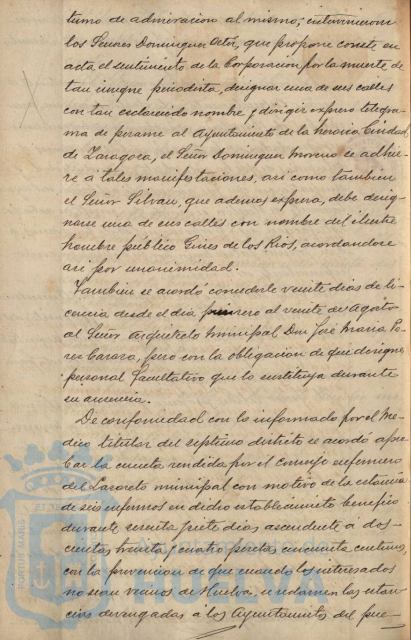 tumo de admiracion al mismo; intervinieron
los Señores Dominguez Ortiz, que propone conste en
acta el sentimiento de la Corporacion por la muerte de
tan insigne periodista, designar una de sus calles
con tan esclarecido nombre y dirigir expreso telegra-
ma de pesame al Ayuntamiento de la heroica Ciudad
de Zaragoza, el Señor Dominguez Moreno se adhie-
re á tales manifestaciones, asi como tambien
el Señor Silvan, que ademas expresa, debe desig-
narse una de sus calles con nombre del ilustre
hombre público Giner de los Rios, acordandose
asi por unanimidad.
Tambien se acordó concederle veinte dias de li-
cencia desde el dia primero al veinte de Agosto
al Señor Arquitecto Municipal Don José Maria Pe-
rez Carasa, pero con la obligacion de que designe
personal facultativo que lo sustituya durante
su ausencia.
De conformidad con lo informado por el Me-
dico titular del septimo distrito se acordó apro-
bar la cuenta rendida por el Conserje enfermero
del Lazareto municipal con motivo de la estancia
de seis enfermos en dicho establecimiento benefico
durante treinta y siete dias ascendente á dos-
cientas treinta y cuatro pesetas cincuenta centimos,
con la prevencion de que cuando los interesados
no sean vecinos de Huelva, se reclamen las estan-
cias devengadas á los Ayuntamientos del pue-
Ayuntamiento de
HUELVA
PORTUS MARIS